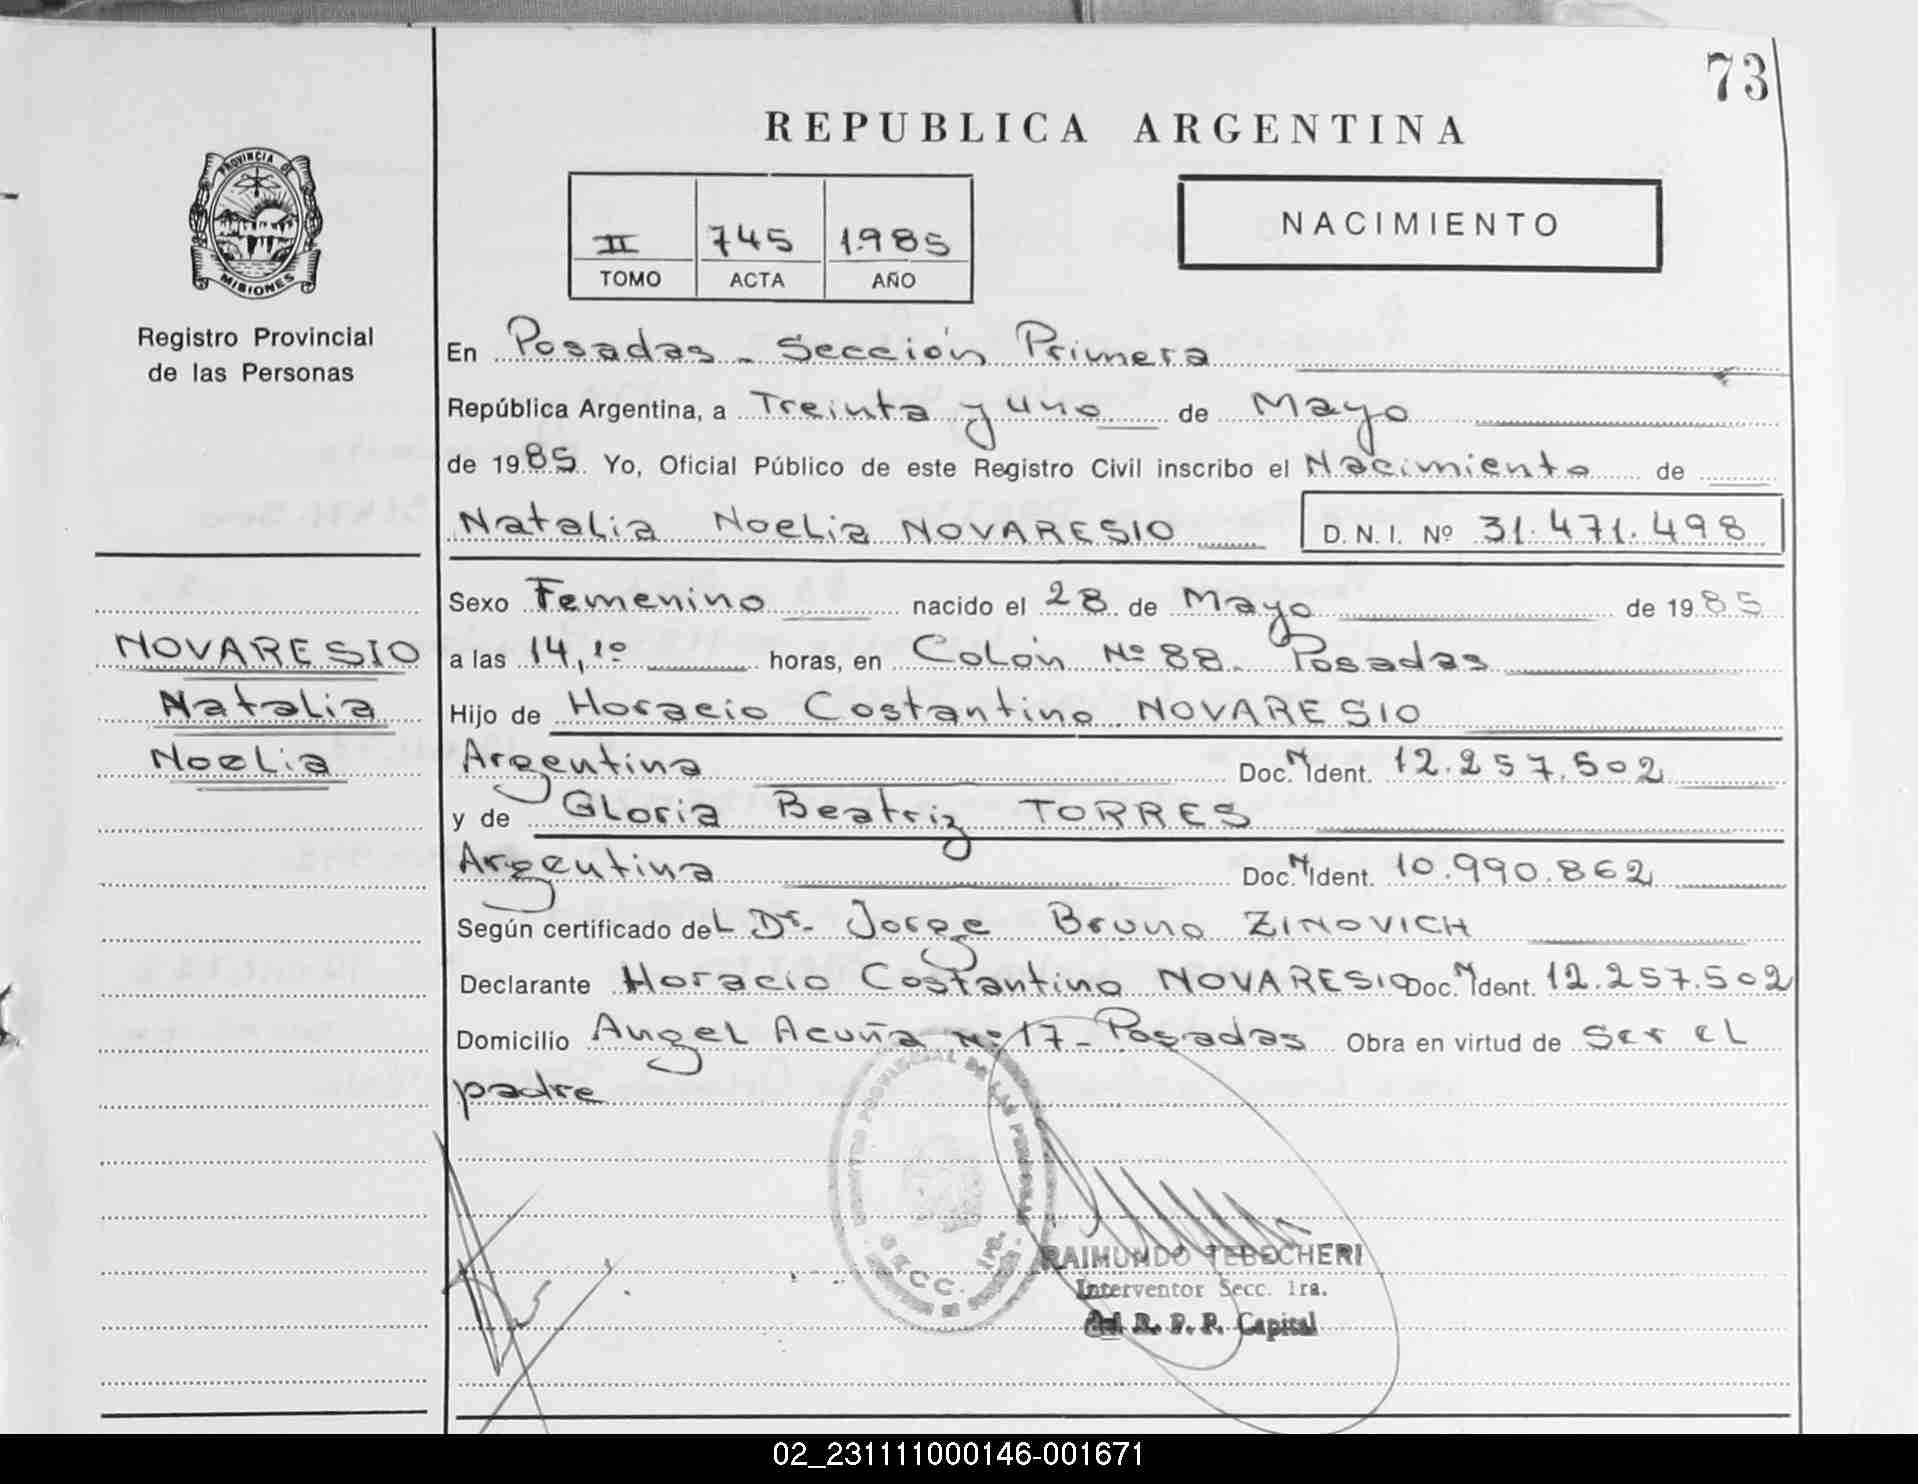 73
REPUBLICA ARGENTINA
PROVINCIA DE
MISIONES
Registro Provincial
de las Personas
II 745 1985
TOMO ACTA AÑO
NACIMIENTO
En Posadas - Sección Primera
República Argentina, a Treinta y uno de Mayo
de 1985 Yo, Oficial Público de este Registro Civil inscribo el Nacimiento de
Natalia Noelia NOVARESIO D. N. I. Nº 31.471.498
Sexo Femenino nacido el 28 de Mayo de 1985
NOVARESIO
Natalia
Noelia
a las 14,10 horas, en Colón Nº 88 - Posadas
Hijo de Horacio Costantino NOVARESIO
Argentina Doc. N Ident. 12.257.502
y de Gloria Beatriz TORRES
Argentina Doc. N Ident. 10.990.862
Según certificado del Dr. Jorge Bruno ZINOVICH
Declarante Horacio Costantino NOVARESIO Doc. N Ident. 12.257.502
Domicilio Angel Acuña Nº 17 - Posadas Obra en virtud de ser el
padre
PROVINCIAL DE LAS
SECC. 1ra.
RAIMUNDO TEBECHERI
Interventor Secc. 1ra.
del R. P. P. Capital
02_231111000146-001671